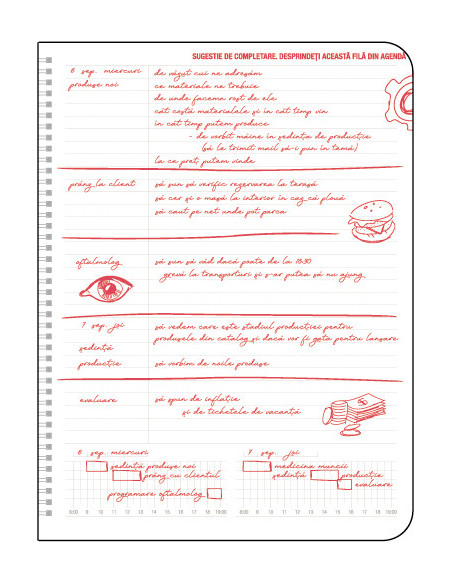 SUGESTIE DE COMPLETARE. DESPRINDEȚI ACEASTĂ FILĂ DIN AGENDĂ
6 sep. miercuri
de văzut cui ne adresăm
produse noi
ce materiale ne trebuie
de unde facem rost de ele
cât costă materialele și în cât timp vin
în cât timp putem produce
- de vorbit mâine în ședința de producție
(să le trimit mail să-i pun în temă)
la ce preț putem vinde
prânz la client
să sun să verific rezervarea la terasă
să cer și o masă la interior în caz că plouă
să caut pe net unde pot parca
oftalmolog
să sun să văd dacă poate de la 18:30
grevă la transporturi și s-ar putea să nu ajung
7 sep. joi
să vedem care este stadiul producției pentru
ședință
produsele din catalog și dacă vor fi gata pentru lansare
producție
să vorbim de noile produse
evaluare
să spun de inflație
și de tichetele de vacanță
6 sep. miercuri
ședință produse noi
prânz cu clientul
programare oftalmolog
8:00 9 10 11 12 13 14 15 16 17 18 19:00
7 sep. joi
medicina muncii
ședință producție
evaluare
8:00 9 10 11 12 13 14 15 16 17 18 19:00